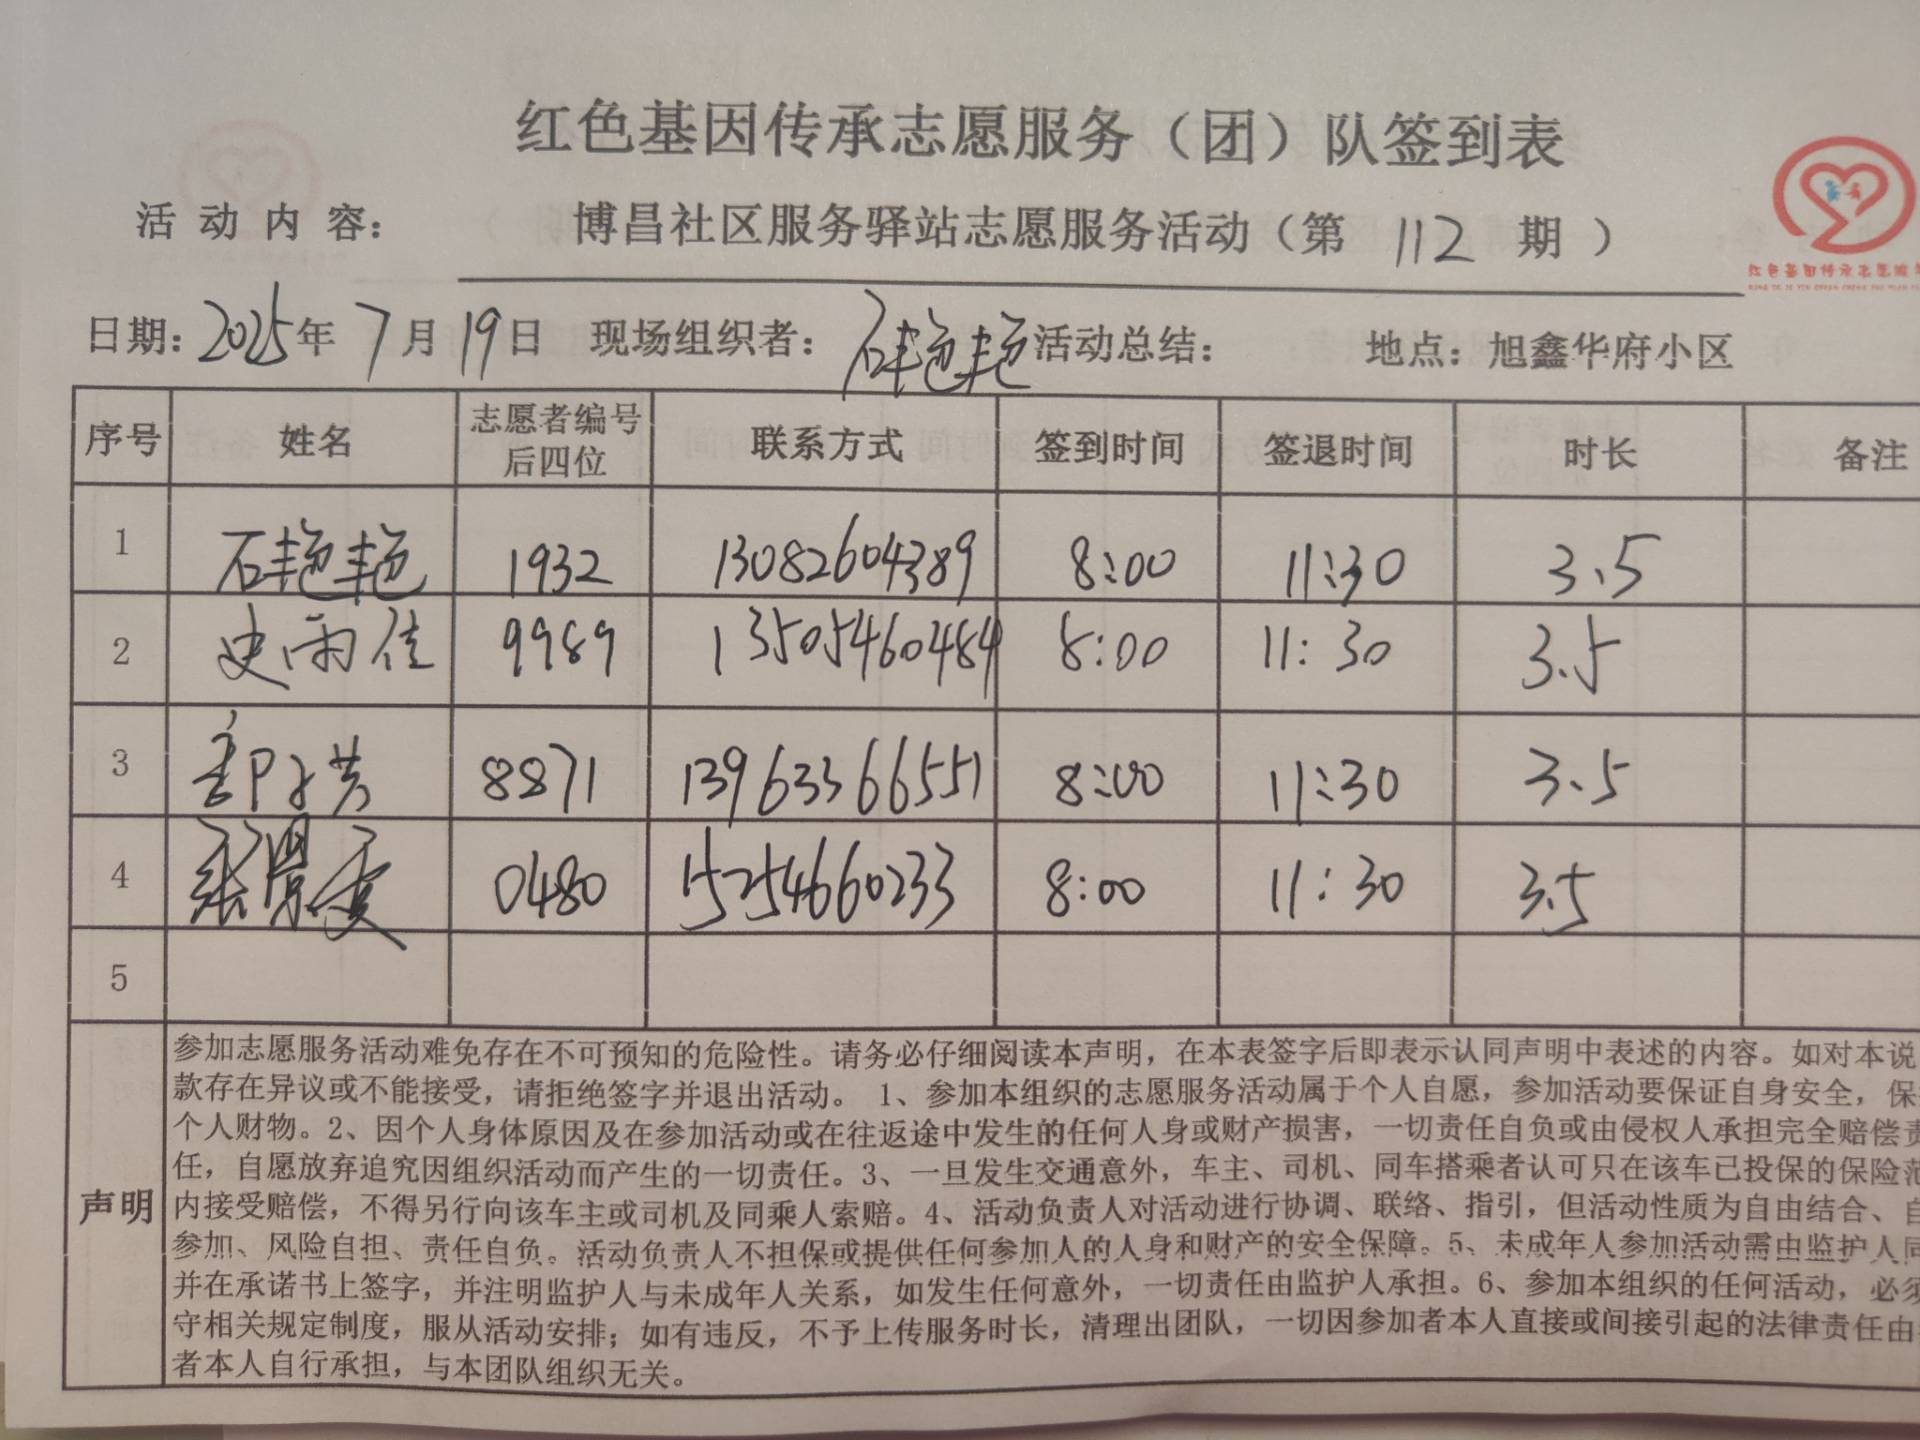 红色基因传承志愿服务（团）队签到表
活动内容： 博昌社区服务驿站志愿服务活动（第 112 期）
日期：2025年 7月19日 现场组织者：石艳艳 活动总结： 地点：旭鑫华府小区
序号 姓名 志愿者编号后四位 联系方式 签到时间 签退时间 时长 备注
1 石艳艳 1932 13082604389 8:00 11:30 3.5
2 史雨佳 9989 13505460484 8:00 11:30 3.5
3 8871 13963366551 8:00 11:30 3.5
4 张 0480 15254660233 8:00 11:30 3.5
5
声明
参加志愿服务活动难免存在不可预知的危险性。请务必仔细阅读本声明，在本表签字后即表示认同声明中表述的内容。如对本说
款存在异议或不能接受，请拒绝签字并退出活动。 1、参加本组织的志愿服务活动属于个人自愿，参加活动要保证自身安全，保
个人财物。2、因个人身体原因及在参加活动或在往返途中发生的任何人身或财产损害，一切责任自负或由侵权人承担完全赔偿责
任，自愿放弃追究因组织活动而产生的一切责任。3、一旦发生交通意外，车主、司机、同车搭乘者认可只在该车已投保的保险范
内接受赔偿，不得另行向该车主或司机及同乘人索赔。4、活动负责人对活动进行协调、联络、指引，但活动性质为自由结合、自
参加、风险自担、责任自负。活动负责人不担保或提供任何参加人的人身和财产的安全保障。5、未成年人参加活动需由监护人同
并在承诺书上签字，并注明监护人与未成年人关系，如发生任何意外，一切责任由监护人承担。6、参加本组织的任何活动，必须
守相关规定制度，服从活动安排；如有违反，不予上传服务时长，清理出团队，一切因参加者本人直接或间接引起的法律责任由
者本人自行承担，与本团队组织无关。